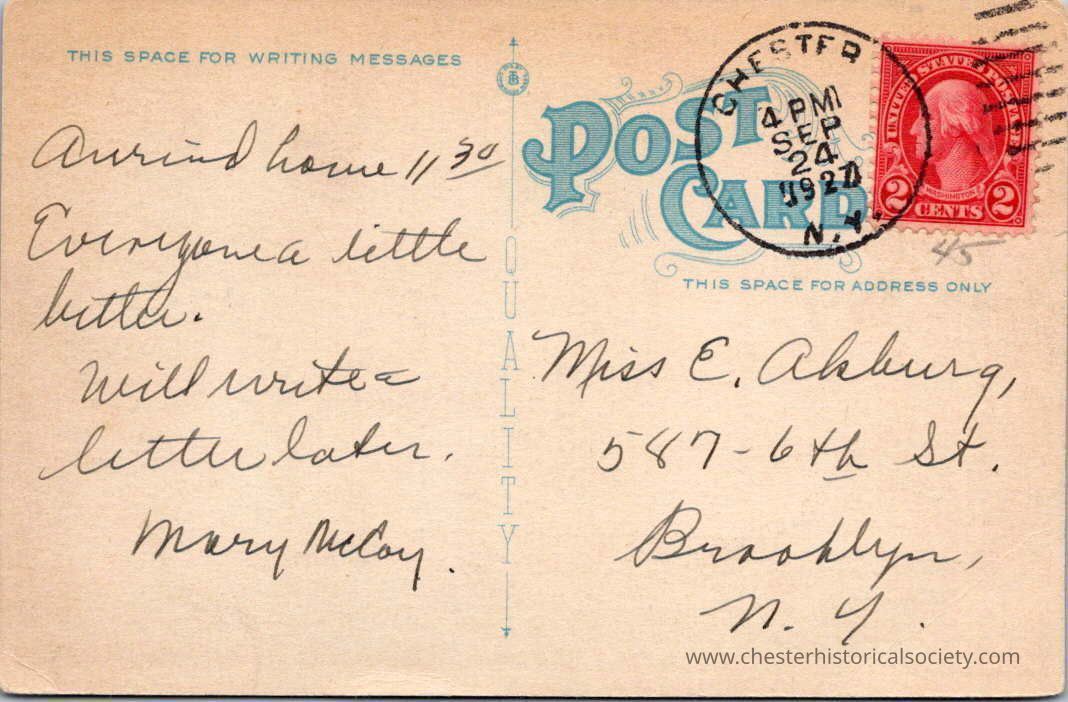 THIS SPACE FOR WRITING MESSAGES
Arrived home 11 30
Everyone a little
better.
Will write a
letter later.
Mary McCoy.
QUALITY
POST
CARD
CHESTER
4 PM
SEP
24
1927
N.Y.
UNITED STATES POSTAGE
WASHINGTON
2 CENTS 2
45
THIS SPACE FOR ADDRESS ONLY
Miss E. Akburg,
587-6th St.
Brooklyn,
N. Y.
www.chesterhistoricalsociety.com